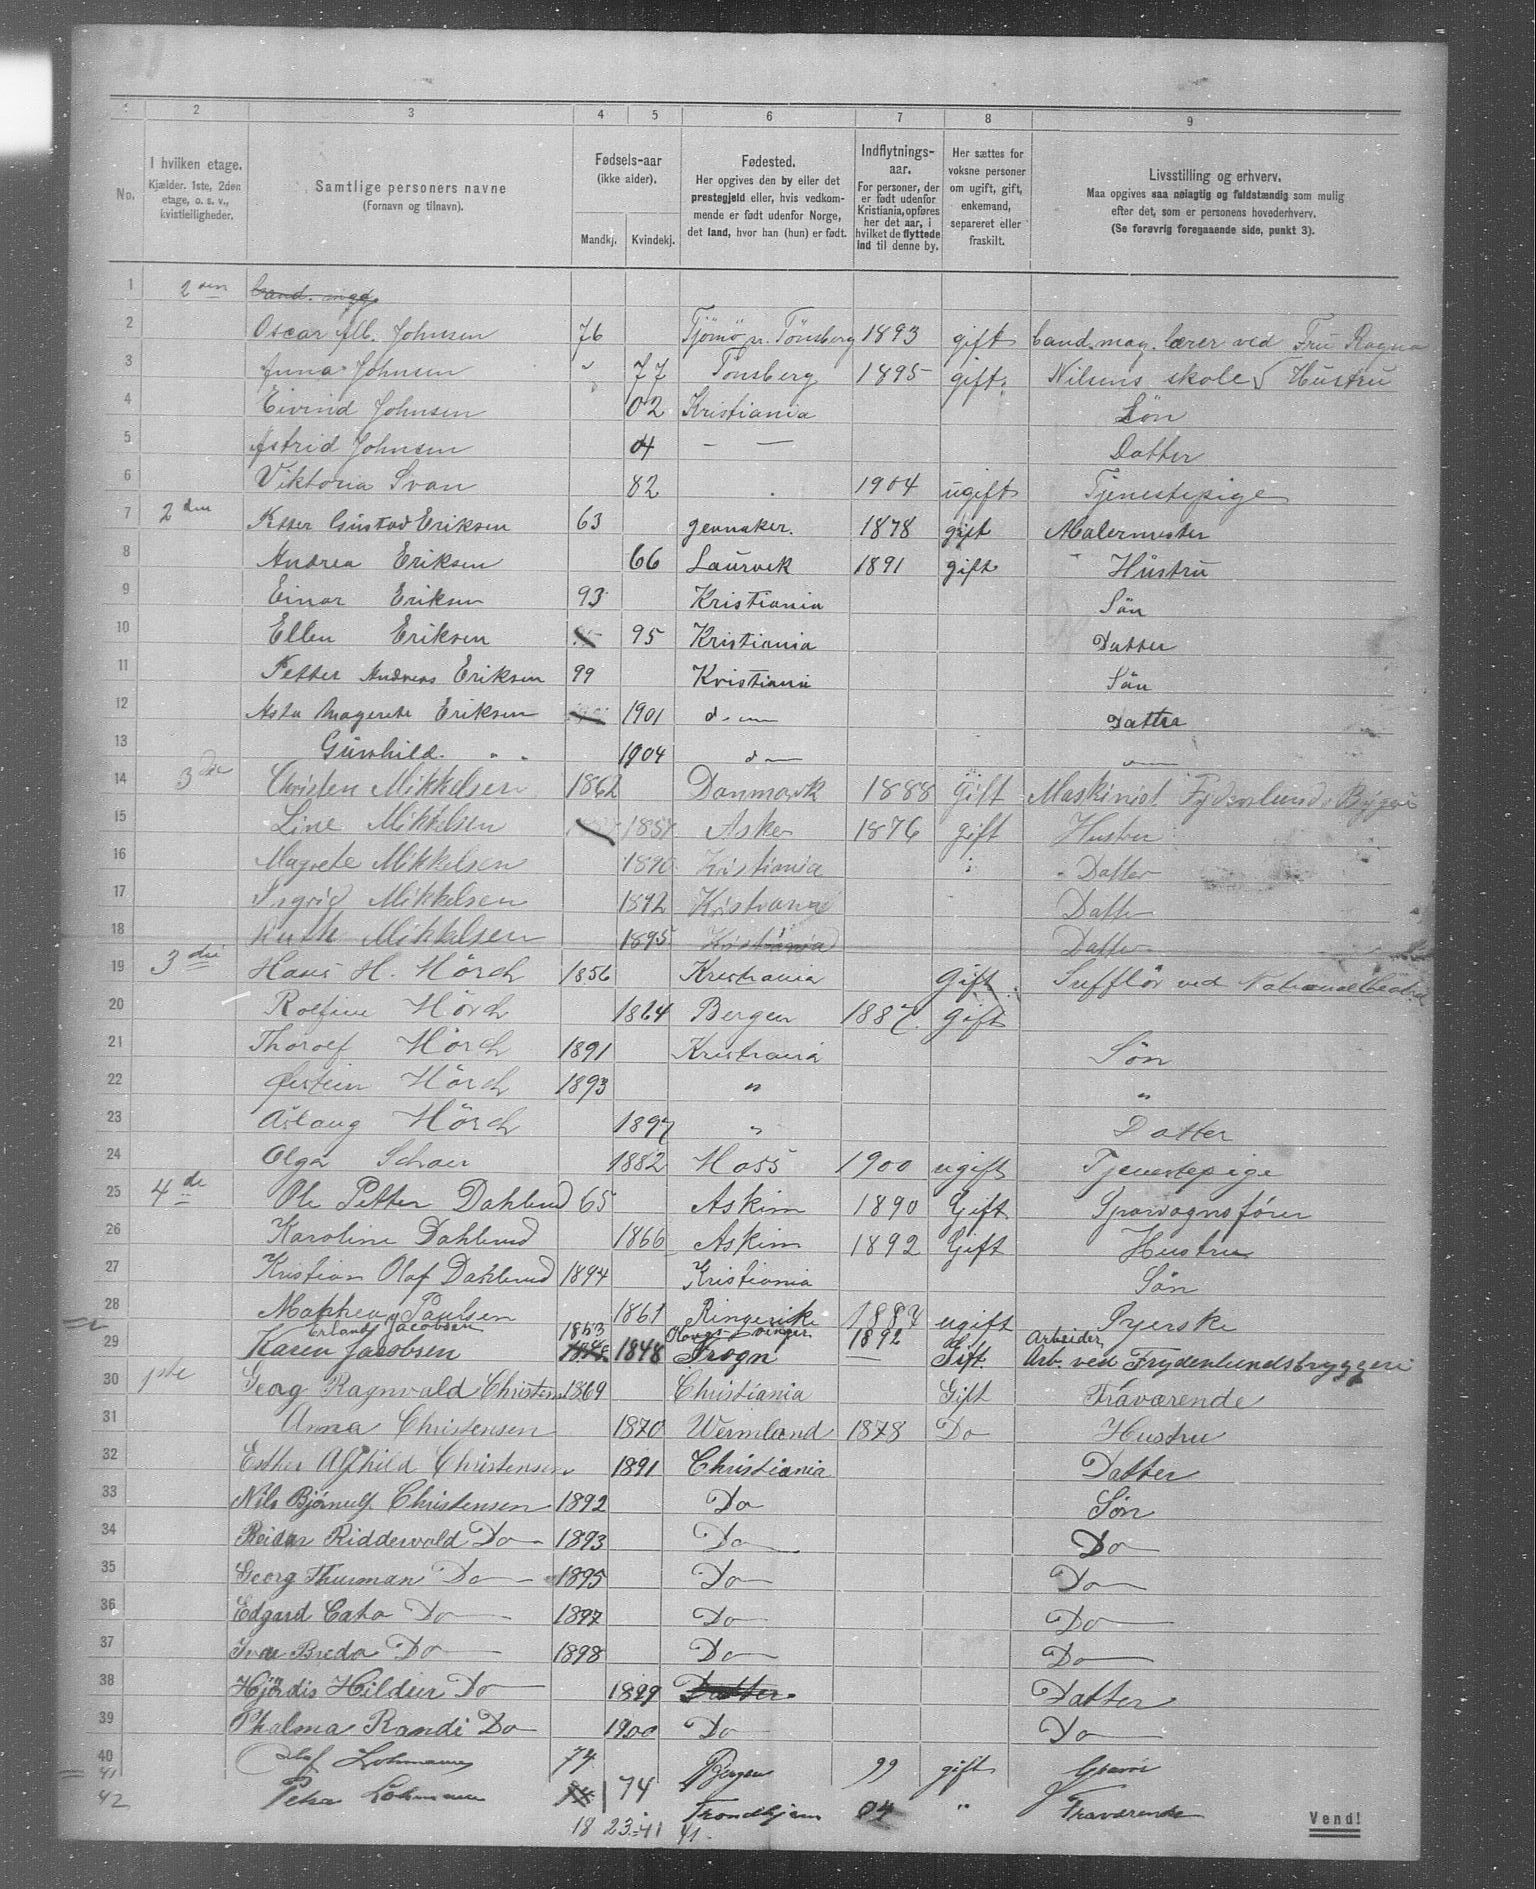 1 2 3 4 5 6 7 8 9
No. I hvilken etage. Kjælder. 1ste, 2den etage, o. s. v., kvistleiligheder. Samtlige personers navne (Fornavn og tilnavn). Fødsels-aar (ikke alder). Mandkj. Kvindekj. Fødested. Her opgives den by eller det prestegjeld eller, hvis vedkommende er født udenfor Norge, det land, hvor han (hun) er født. Indflytnings-aar. For personer, der er født udenfor Kristiania, opføres her det aar, i hvilket de flyttede ind til denne by. Her sættes for voksne personer om ugift, gift, enkemand, separeret eller fraskilt. Livsstilling og erhverv. Maa opgives saa nøiagtig og fuldstændig som mulig efter det, som er personens hovederhverv. (Se forøvrig foregaaende side, punkt 3).
1 2den cand. mag.
2 Oscar Alb. Johnsen 76 Tjömö n. Tönsberg 1893 gift cand. mag. lærer ved Fru Ragna
3 Anna Johnsen 77 Tönsberg 1895 gift. Nilsens skole Hustru
4 Eivind Johnsen 02 Kristiania Sön
5 Astrid Johnsen 04 — — Datter
6 Viktoria Svan 82 1904 ugift Tjenestepige
7 2den Petter Gustav Eriksen 63 Jevnaker. 1878 gift Malermester
8 Andrea Eriksen 66 Laurvik 1891 gift Hustru
9 Einar Eriksen 93 Kristiania Sön
10 Ellen Eriksen 95 Kristiania Datter
11 Petter Andreas Eriksen 99 Kristiania Sön
12 Asta Magrete Eriksen 1901 d. — Datter
13 Gunhild. " " 1904 d — —
14 3die Christen Mikkelsen 1862 Danmark 1888 Gift Maskinist Frydenlunds Bryggeri
15 Line Mikkelsen Asker 1876 gift Hustru
16 Magrete Mikkelsen 1890 Kristiania Datter
17 Sigrid Mikkelsen 1892 Kristiania Datter
18 Ruth Mikkelsen 1895 Kristiania Datter
19 3die Hans H. Mörch 1856 Kristiania Gift Sufflör ved Nationaltheatret
20 Rolfine Mörch 1864 Bergen 1887. Gift
21 Thorolf Mörch 1891 Kristiania Sön
22 Øistein Mörch 1893 " "
23 Aslaug Mörch 1897 " Datter
24 Olga 1882 Moss 1900 ugift Tjenestepige
25 4de Ole Petter Dahlund 65 Askim 1890 Gift Sporvognsfører
26 Karoline Dahlund 1866 Askim 1892 Gift Hustru
27 Kristian Olaf Dahlund 1894 Kristiania Sön
28 Paulsen 1861 Ringerike 1887 ugift Syerske
Erland Jacobsen 1853 Kongsvinger 1892 Arbeider
29 Karen Jacobsen 1848 1848 Frogn — Gift. Arb. ved Frydenlundsbryggeri
30 1ste Georg Ragnvald Christensen 1869 Christiania Gift Fraværende
31 Anna Christensen 1870 Wermland 1878 Do Hustru
32 Esther Alfhild Christensen 1891 Christiania Datter
33 Nils Bjørnulf Christensen 1892 Do Søn
34 Reidar Riddervold Do 1893 Do Do
35 Georg Thurman Do 1895 Do Do
36 Edgard Cato Do 1897 Do Do
37 Ivar Breda Do 1898 Do Do
38 Hjördis Hildur Do 1899 Datter Datter
39 Thalma Randi Do 1900 Do Do
40 Olaf Lohmann 74 Bergen 99 gift
41
42 Petra Lohmann 74 74 Trondhjem 04 " Fraværende
18 23 = 41 41. Vend!